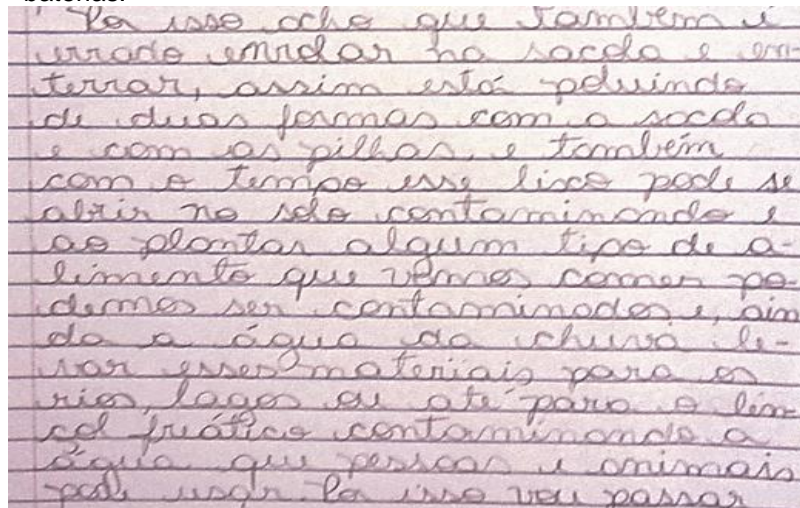 baterias.
Por isso acho que também é
errado enrolar na sacola e en-
terrar, assim está poluindo
de duas formas com a sacola
e com as pilhas, e também
com o tempo esse lixo pode se
abrir no solo contaminando e
ao plantar algum tipo de a-
limento que vamos comer po-
demos ser contaminados e, ain
da a água da chuva le-
var esses materiais para os
rios, lagos ou até para o len
col freático contaminando a
água que pessoas e animais
pode usar. Por isso vou passar